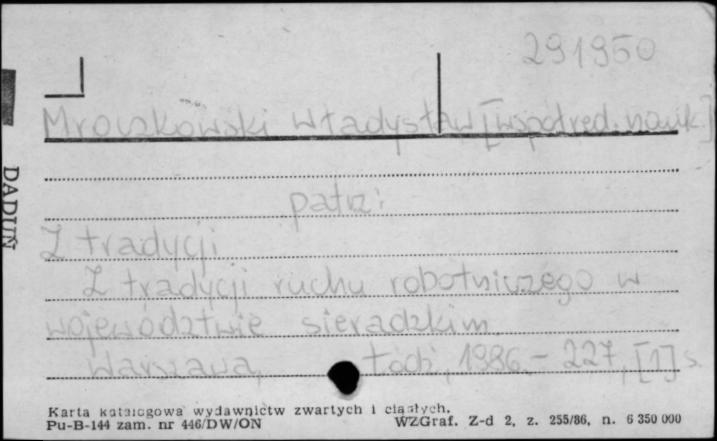 291950
Mroczkowski Władysław [współred. nauk.]
patrz:
Z tradycji
Z tradycji ruchu robotniczego w
województwie sieradzkim.
Warszawa, Łódź, 1986. - 227, [1] s.
DADUŃ
Karta katalogowa wydawnictw zwartych i ciągłych.
Pu-B-144 zam. nr 446/DW/ON WZGraf. Z-d 2, z. 255/86, n. 6 350 000